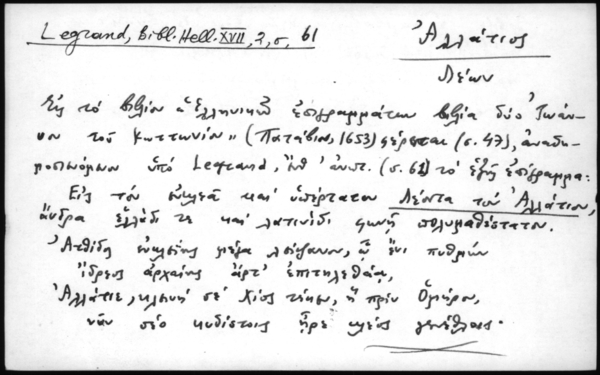 Legrand, Bibl. Hell. XVII, 2, σ. 61
Ἀλλάτιος
Λέων
Εἰς τὸ βιβλίον "Ἑλληνικῶν ἐπιγραμμάτων βιβλία δύο Ἰωάν-
νου τοῦ Κωττωνίου" (Πατάβιον, 1653) φέρεται (σ. 47), ἀναδη-
μοσιευόμενον ὑπὸ Legrand, ἔνθ' ἀνωτ. (σ. 61) τὸ ἑξῆς ἐπίγραμμα:
Εἰς τὸν εὐκλεᾶ καὶ ὑπέρτατον Λέοντα τὸν Ἀλλάτιον,
ἄνδρα ἑλλάδι τε καὶ λατινίδι φωνῇ πολυμαθέστατον.
Ἀτθίδος εὐκλείης μέγα λείψανον, ᾧ ἔνι πυθμὴν
ἴδρεος ἀρχαίης ἄρτ'
Ἀλλάτιε, κλεινή σε Χίος τέκεν, ἣ πρὶν Ὅμηρον,
νῦν σέο κυδίστοις ἦρε κλέος γενέθλοις.